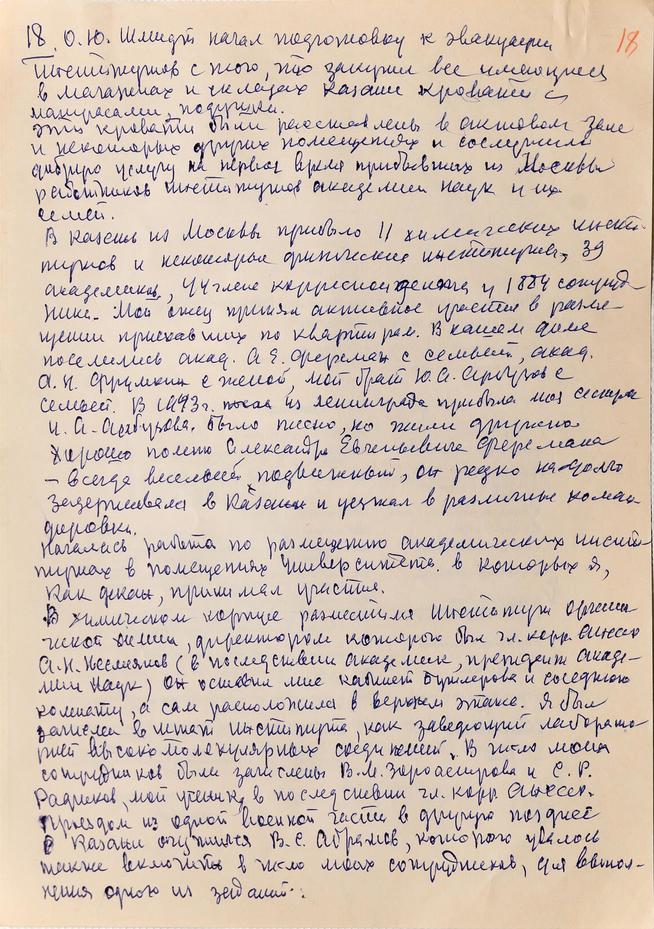 18. О.Ю. Шмидт начал подготовку к эвакуации 18
Институтов с того, что закупил все имеющиеся
в магазинах и складах Казани кровати с
матрасами, подушки.
Эти кровати были расставлены в актовом зале
и некоторых других помещениях и сослужили
добрую услугу на первое время прибывших из Москвы
работников институтов академии наук и их
семей.
В Казань из Москвы прибыло 11 химических инсти-
тутов и некоторые физические институты, 39
академиков, 44 члена корреспондента и 1884 сотруд-
ника. Мой отец принял активное участие в разме-
щении приехавших по квартирам. В нашем доме
поселились акад. А.Е. Ферсман с семьей, акад.
А.Н. Фрумкин с женой, мой брат Ю.А. Арбузов с
семьей. В 1943г. из Ленинграда прибыла моя сестра
И.А. Арбузова. Было тесно, но жили дружно
Хорошо помню Александра Евгеньевича Ферсмана
— всегда веселый, подвижный, он редко надолго
задерживался в Казани и уезжал в различные коман
дировки.
Началась работа по размещению академических инсти
тутах в помещениях Университета. в которых я,
как декан, принимал участия.
В химическом корпусе разместился Институт органи
ческой химии, директором которого был чл. корр.
А.Н. Несмеянов (в последствии академик, президент Акаде-
мии Наук) Он оставил мне кабинет Бутлерова и соседнюю
комнату, а сам расположился в верхнем этаже. Я был
зачислен в штат института, как заведующий лаборато
рией высокомолекулярных соединений. В число моих
сотрудников были зачислены В.М. Зороастрова и С.Р.
Рафиков, мой ученик, в последствии чл. корр.
Проездом из одной военной части в другую позднее
в Казани очутился В.С. Абрамов, которого удалось
также включить в число моих сотрудников, для выпол-
нения одного из заданий.